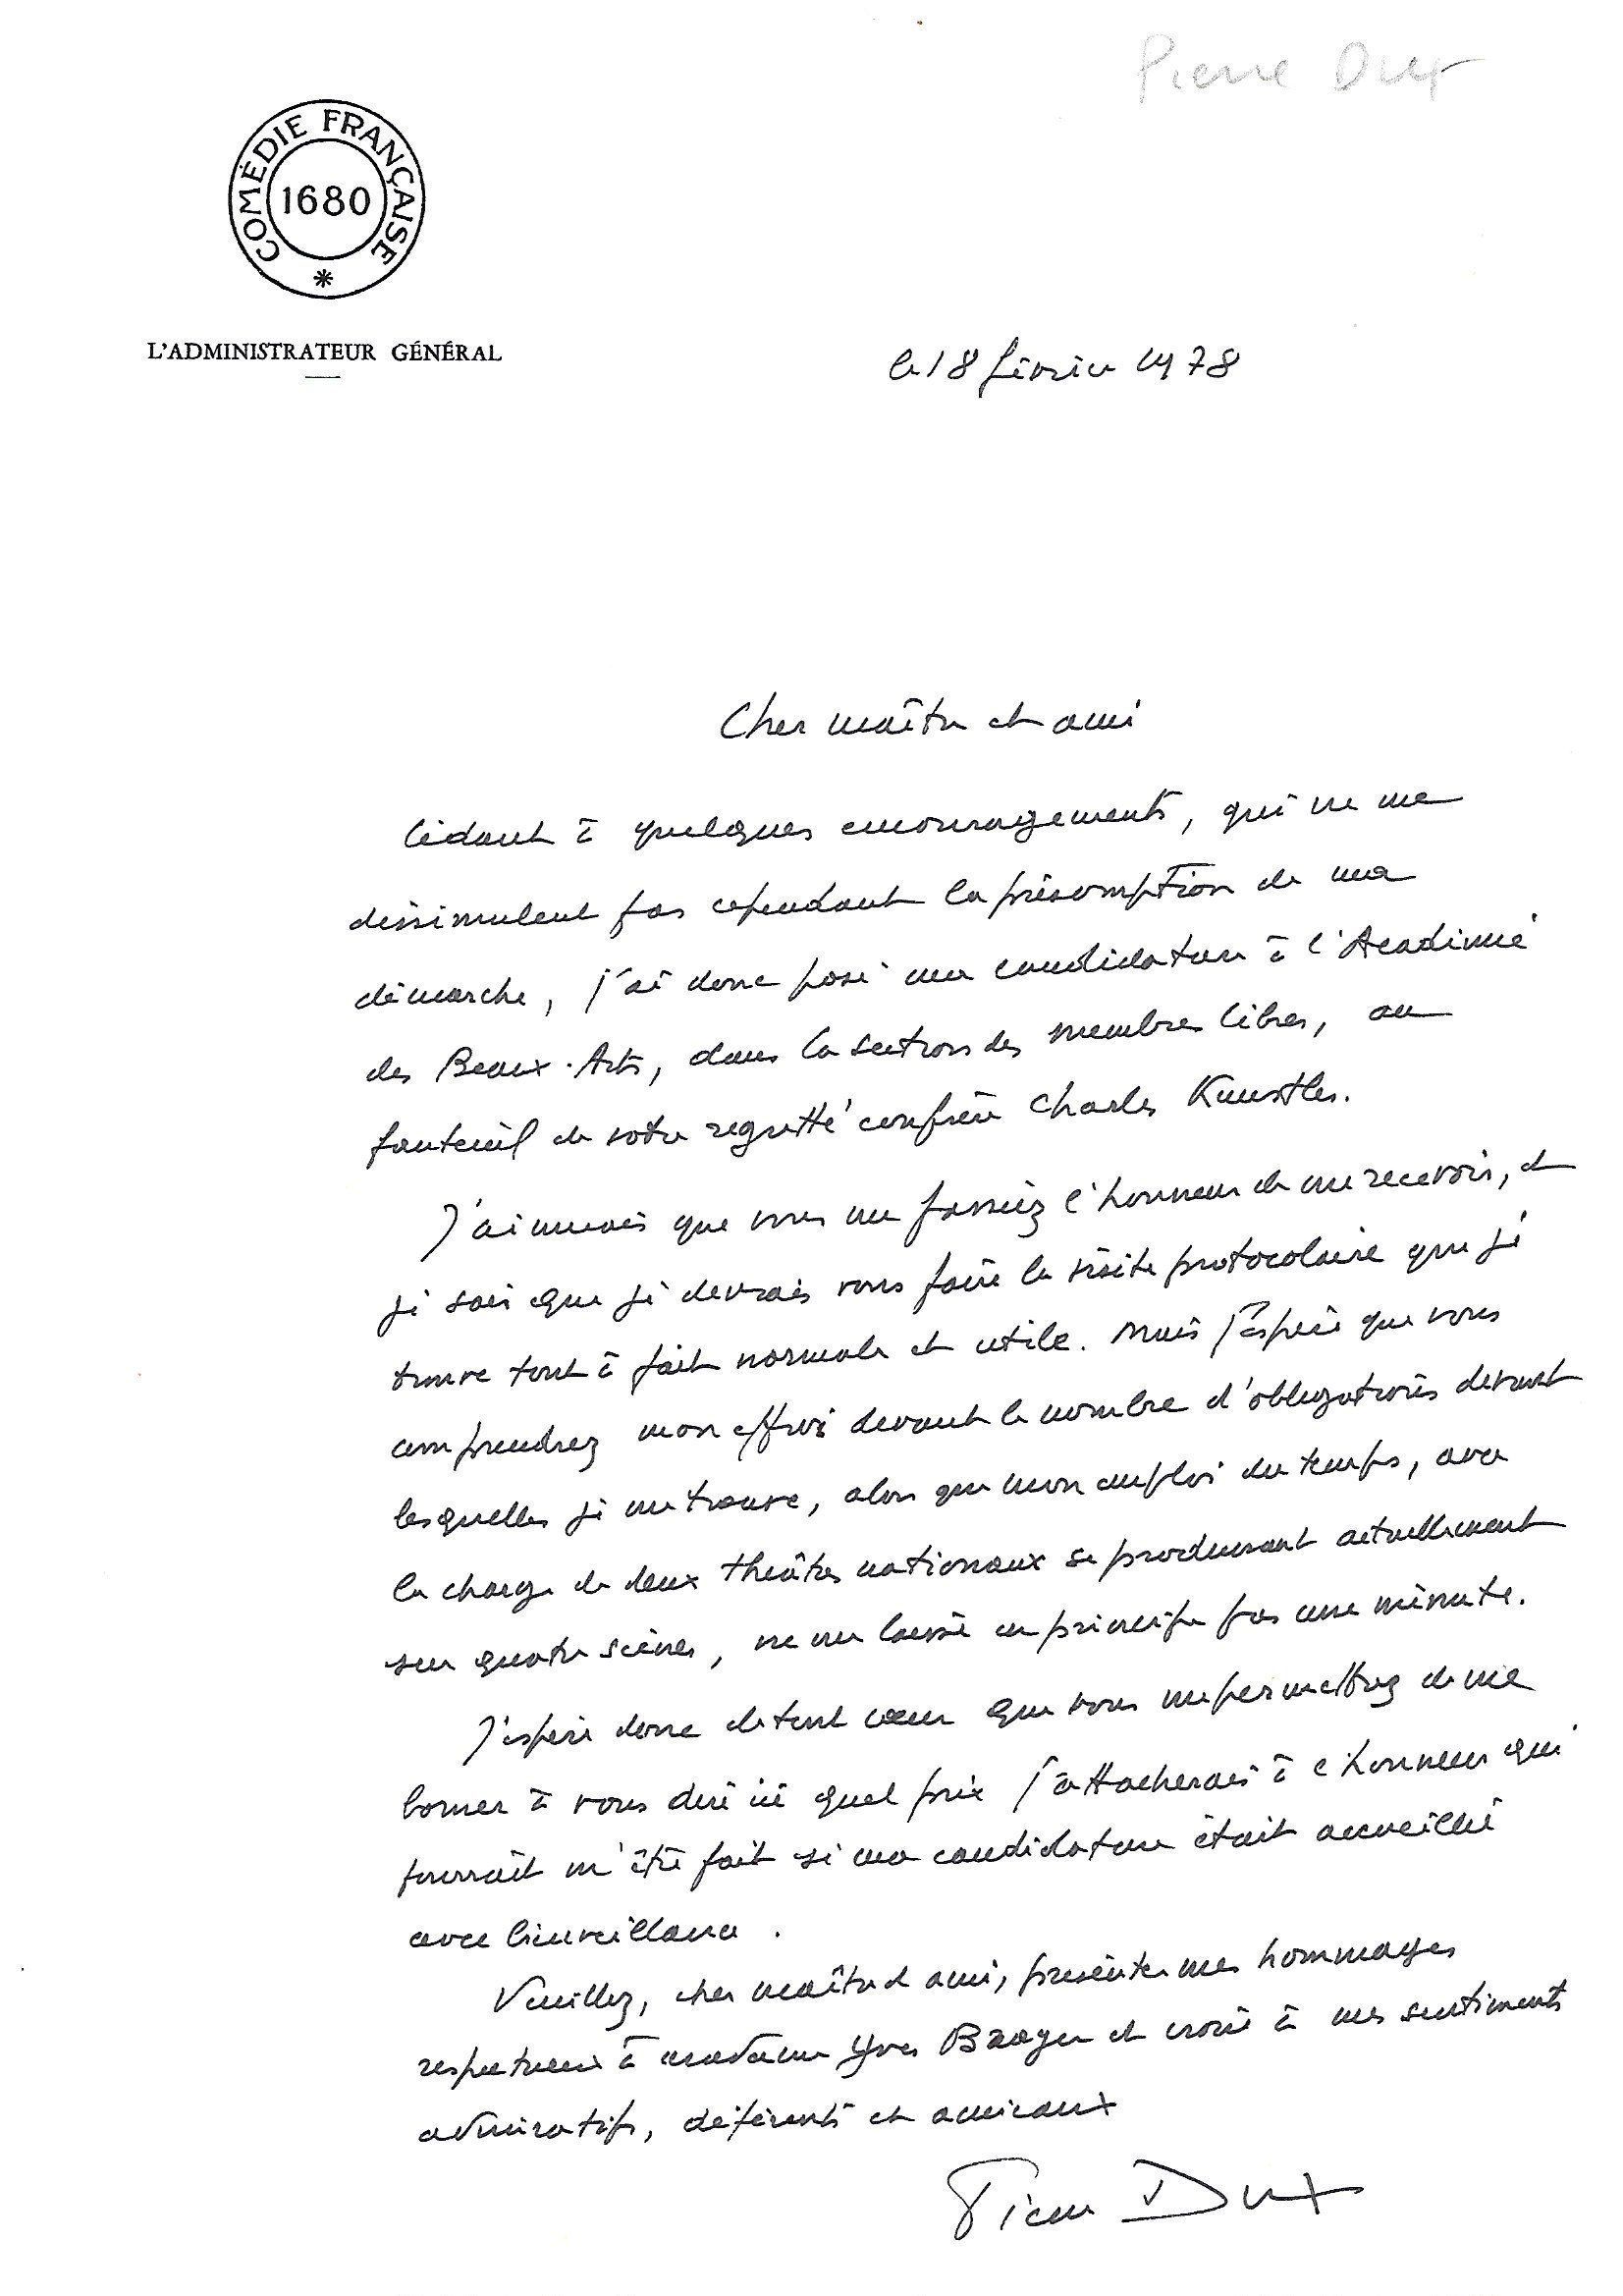 Pierre Dux
COMÉDIE FRANÇAISE
1680
L'ADMINISTRATEUR GÉNÉRAL
le 18 février 1978
Cher maître et ami
Cédant à quelques encouragements, qui ne me
dissimulent pas cependant la présomption de ma
démarche, j'ai donc posé ma candidature à l'Académie
des Beaux-Arts, dans la section des membres libres, au
fauteuil de votre regretté confrère Charles Kunstler.
J'aimerais que vous me fassiez l'honneur de me recevoir, et
je sais que je devrais vous faire la visite protocolaire que je
trouve tout à fait normale et utile. Mais j'espère que vous
comprendrez mon effroi devant le nombre d'obligations devant
lesquelles je me trouve, alors que mon emploi du temps, avec
la charge de deux théâtres nationaux se produisant actuellement
sur quatre scènes, ne me laisse en principe pas une minute.
J'espère donc de tout cœur que vous me permettrez de me
borner à vous dire ici quel prix j'attacherais à l'honneur qui
pourrait m'être fait si ma candidature était accueillie
avec bienveillance.
Veuillez, cher maître et ami, présenter mes hommages
respectueux à madame Yves Brayer et croire à mes sentiments
admiratifs, déférents et amicaux
Pierre Dux